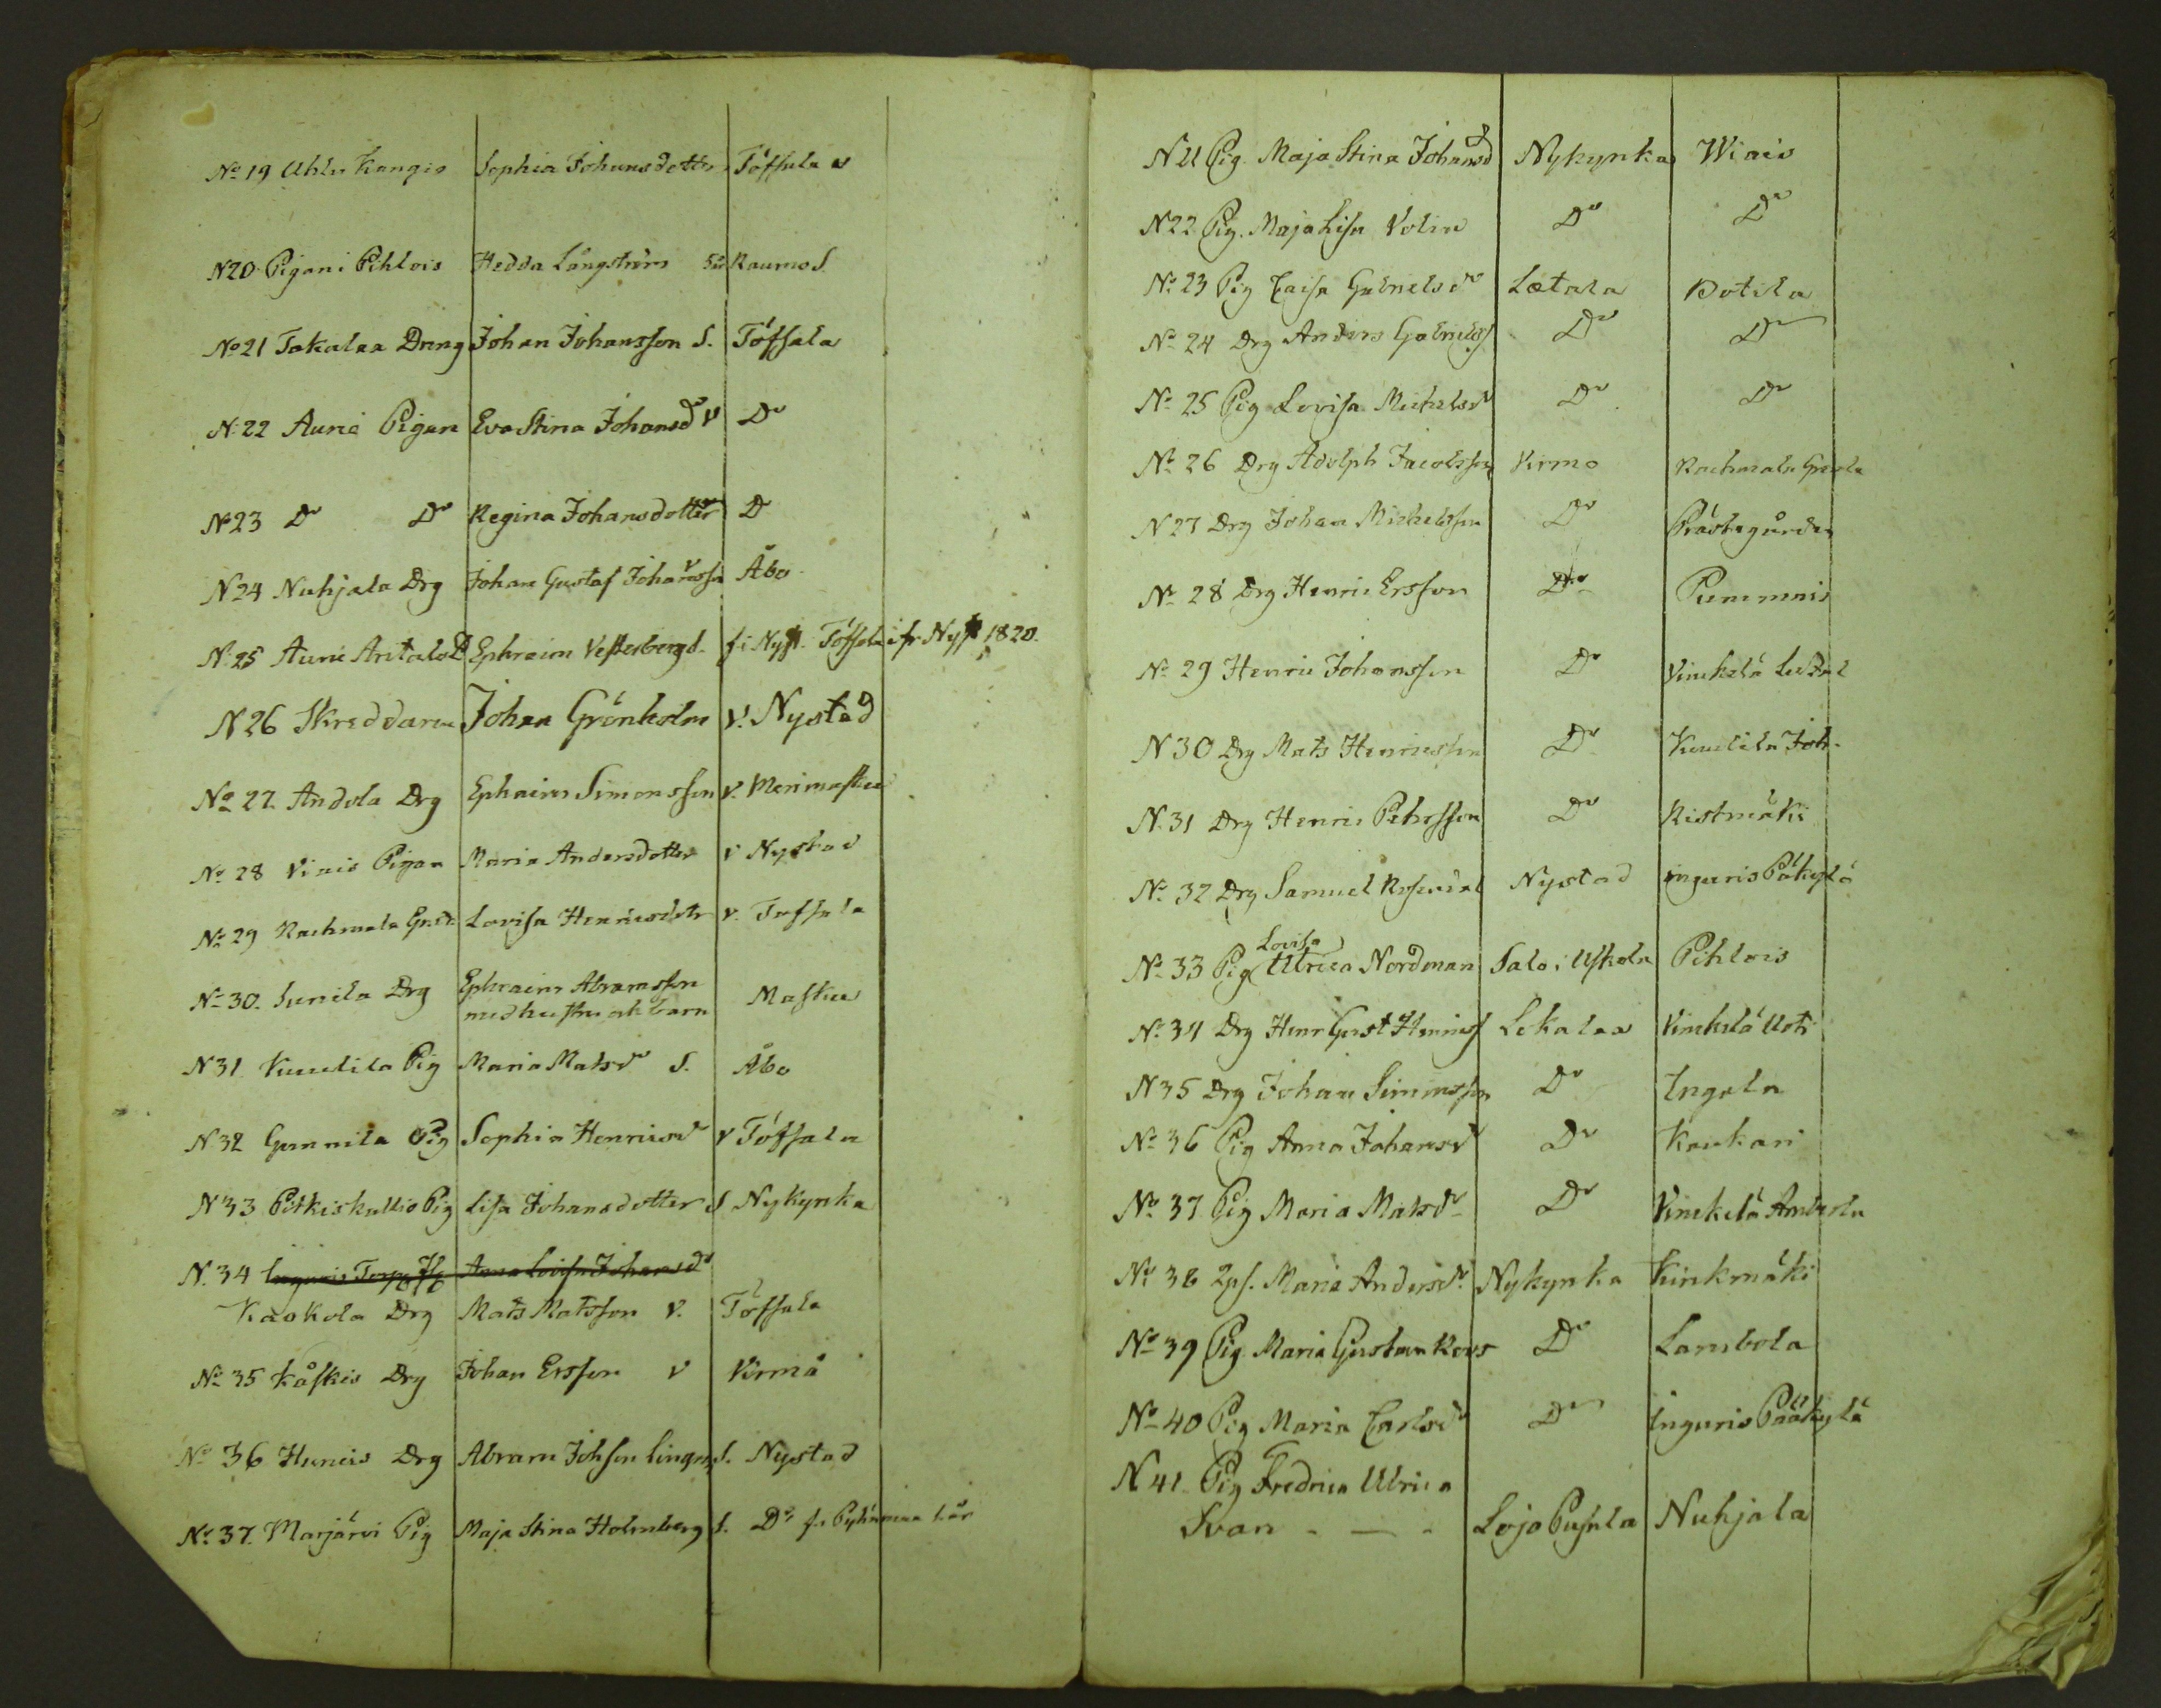 No 19 Uhlu Kangis Sophia Johansdotter Töffsala
N 20 Pigan i Pihlois Hedda Långström Raumo S.
No 21 Tokalaa Dräng Johan Johansson S. Töfsala
N. 22 Aurie Pigan Eva Stina Johansdr v Do
N 23 Do Do Regina Johansdotter Do
N 24 Nuhjala Drg Johan Gustaf Johansson Åbo
N. 25 Aurie Antalo D Ephraim Vesterberg Töfsala 1820.
N 26 Skreddaren Johan Grönholm v. Nystad
No 27. Andola Drg Ephraim Simonsson v. Merimasku
No 28 Viais Pigan Maria Andersdotter v Nystad
No 29 Rachmala Lovisa Henricsdotr v. Toffsala
No 30. Sunila Drg Ephraim Abramsson
med hustru och barn Masku
N 31 Kuulila Pig Maria Matsdr S. Åbo
N 32 Gunnila Pig Sophia Henricsdr v Töfsala
N 33 Pitkiskullis Pig Lisa Johansdotter S Nykyrka
N. 34 Inguris Torp Anna Lovisa Johansdr
Kaokola Drg Mats Matsson v. Töffsala
No 35 Kåskis Drg Johan Ersson v Virmå
No 36 Huncis Drg Abram Johsson S. Nystad
No 37. Marjärvi Pig Maja Stina Holmberg S. Do
N 21 Pig. Maja Stina Johansd Nykyrka Wiais
N 22 Pig. Maja Lisa Volin Do Do
No 23 Pig Caisa Gabrielsdr Letala Potila
No 24 Drg Anders Gabrielss Do Do
No 25 Pig Lovisa Michelsdr Do Do
No 26 Drg Adolph Jacobsson Virmo Rachmala
N 27 Drg Johan Michelsson Do Prästegården
No 28 Drg Henric Ersson Do Pummnis
No 29 Henric Johansson Do Vinkelä
N 30 Drg Mats Henricsson Do Kuulila Joh.
N. 31 Drg Henric Pehrsson Do Ristmäki
No 32 Drg Samuel Rosendal Nystad inguris Päkylä
Lovisa
No 33 Pig Ulrica Nordman Salo i Uskela Pihlois
No 34 Drg Henr Gust Henricss Lokalax Vinkelä Uoti
N 35 Drg Johan Simonsson Do Ingela
No 36 Pig Anna Johansdr Do Koukari
No 37 Pig Maria Matsdr Do Vinkelä Ambrola
No 38 Maria Andersdr Nykyrka Kinkmäki
No 39 Pig Maria Gustava Ross Do Lambola
No 40 Pig Maria Carlsdr Do Inguris Pääkylä
N 41 Pig Fredrica Ulrica
Svan - — - Lojo Pusula Nuhjala